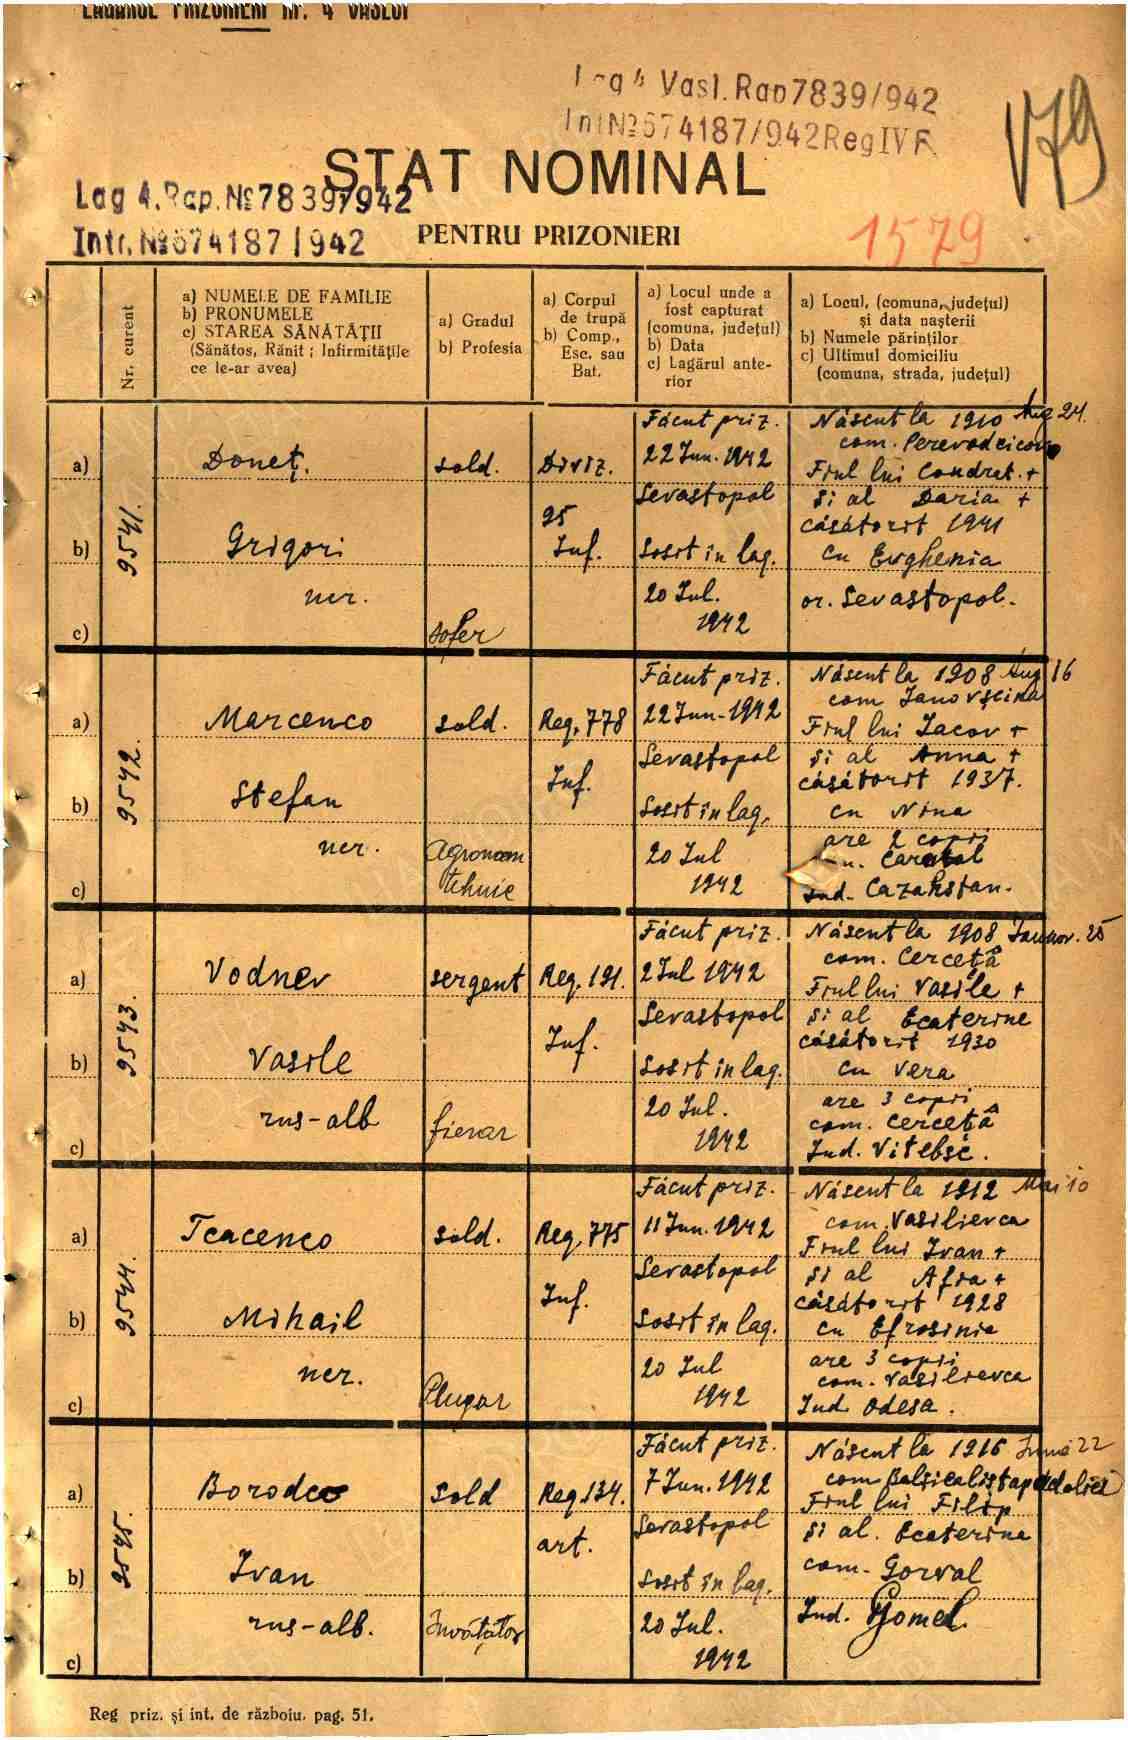 LAGĂRUL PRIZONIERI Nr. 4 VASLUI
Lag 4 Vasl. Rap 7839/942
Int № 674187/942 Reg IV F.
V79
STAT NOMINAL
Lag 4. Rap. № 7839/942
Intr. № 674187/942
PENTRU PRIZONIERI
1579
Nr. curent
a) NUMELE DE FAMILIE
b) PRONUMELE
c) STAREA SĂNĂTĂȚII
(Sănătos, Rănit ; Infirmitățile
ce le-ar avea)
a) Gradul
b) Profesia
a) Corpul
de trupă
b) Comp.,
Esc. sau
Bat.
a) Locul unde a
fost capturat
(comuna, județul)
b) Data
c) Lagărul ante-
rior
a) Locul, (comuna, județul)
și data nașterii
b) Numele părinților
c) Ultimul domiciliu
(comuna, strada, județul)
9541.
a)
b)
c)
Doneț.
Grigori
ner.
sold.
șofer
Diviz.
95
Inf.
Făcut priz.
22 Iun. 1942
Sevastopol
Sosit în lag.
20 Iul.
1942
Născut la 1910 Aug 24.
com.
Fiul lui Condrat. +
Și al Daria +
căsătorit 1941
cu Evghenia
or. Sevastopol.
9542.
a)
b)
c)
Marcenco
Stefan
ner.
sold.
Agronom
tehnic
Reg. 778
Inf.
Făcut priz.
22 Iun. 1942
Sevastopol
Sosit în lag.
20 Iul
1942
Născut la 1908 Aug 16
com Ianovscina
Fiul lui Iacov +
Și al Anna +
căsătorit 1937.
cu Nina
are 2 copii
Ind. Cazahstan.
9543.
a)
b)
c)
Vodnev
Vasile
rus-alb
sergent
fierar
Reg. 191.
Inf.
Făcut priz.
2 Iul 1942
Sevastopol
Sosit în lag.
20 Iul.
1942
Născut la 1908 25
com. Cerceță
Fiul lui Vasile +
Și al Ecaterine
căsătorit 1930
cu Vera
are 3 copii
com. Cerceță
Iud. Vitebsc.
9544.
a)
b)
c)
Tcacenco
Mihail
ner.
sold.
Plugar
Reg. 775
Inf.
Făcut priz.
11 Iun. 1942
Sevastopol
Sosit în lag.
20 Iul
1942
Născut la 1912 Mai 10
com. Vasilievca
Fiul lui Ivan +
Și al Afia +
căsătorit 1928
cu Efrosinie
are 3 copii
com. Vasilievca
Iud Odesa.
9545.
a)
b)
c)
Borodco
Ivan
rus-alb.
sold
Învățător
Reg. 134.
art.
Făcut priz.
7 Iun. 1942
Sevastopol
Sosit în lag.
20 Iul.
1942
Născut la 1916 22
com
Fiul lui Filip
Și al. Ecaterina
com. Gorval
Iud. Gomel.
Reg priz. și int. de războiu. pag. 51.